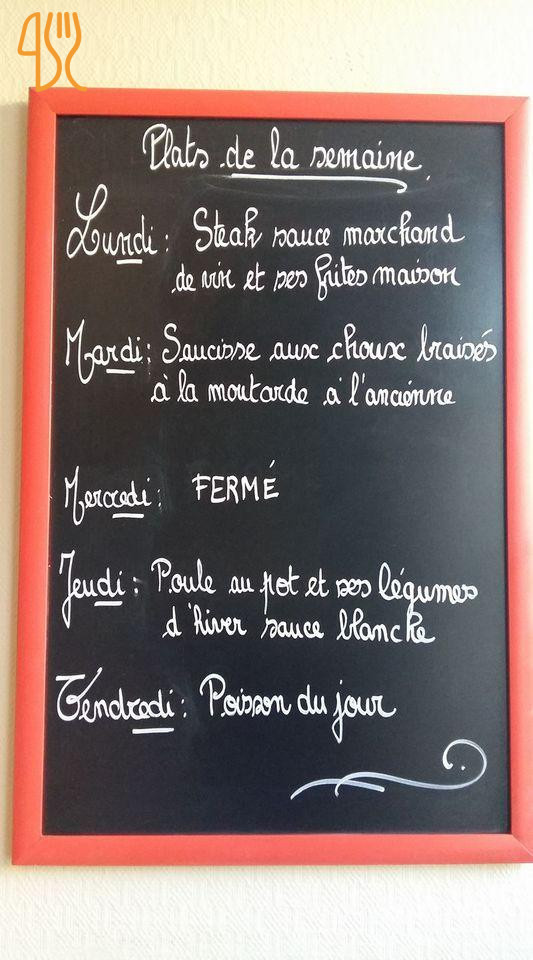 Plats de la semaine
Lundi : Steak sauce marchand
de vin et ses frites maison
Mardi : Saucisse aux choux braisés
à la moutarde à l'ancienne
Mercredi : FERMÉ
Jeudi : Poule au pot et ses légumes
d'hiver sauce blanche
Vendredi : Poisson du jour